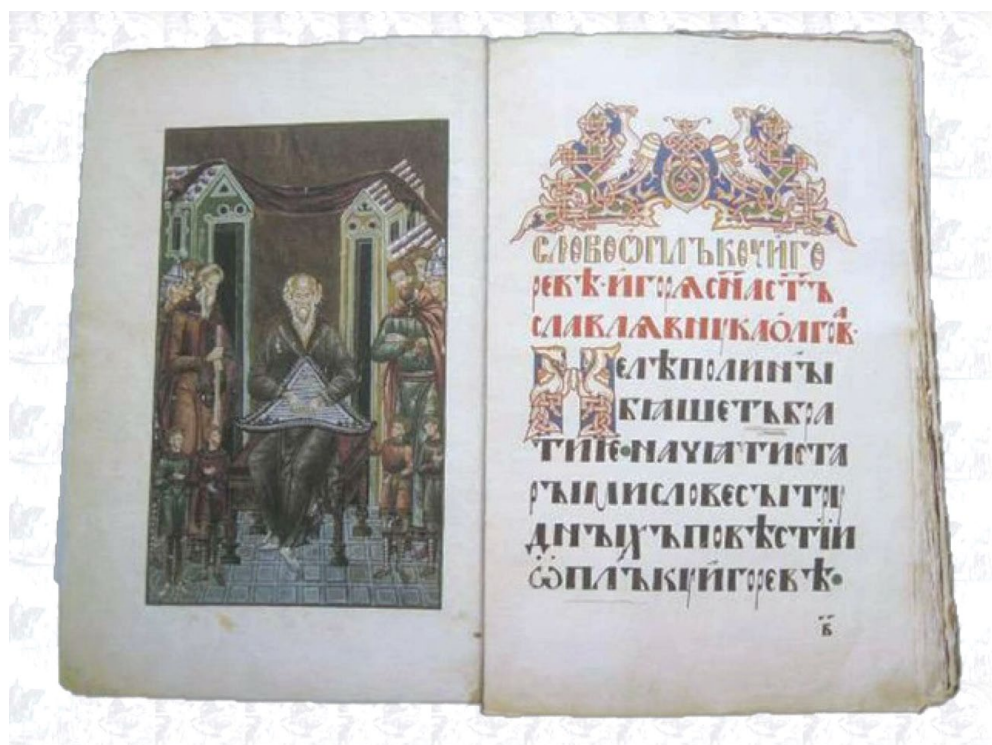 СЛОВО Ѡ ПЛЪКОУ ИГО
РЕВѢ · ИГОРѦ С҃НА СТ҃Ъ
СЛАВЛѦ ВНУКА ОЛГОВА ·
НЕ ЛѢПО ЛИ НЫ
БѦШЕТЪ БРА
ТИѤ · НАЧѦТИ СТА
РЫМИ СЛОВЕСЫ ТРУ
ДНЫХЪ ПОВѢСТІИ
Ѡ ПЛЪКУ ИГОРЕВѢ ·
В҃